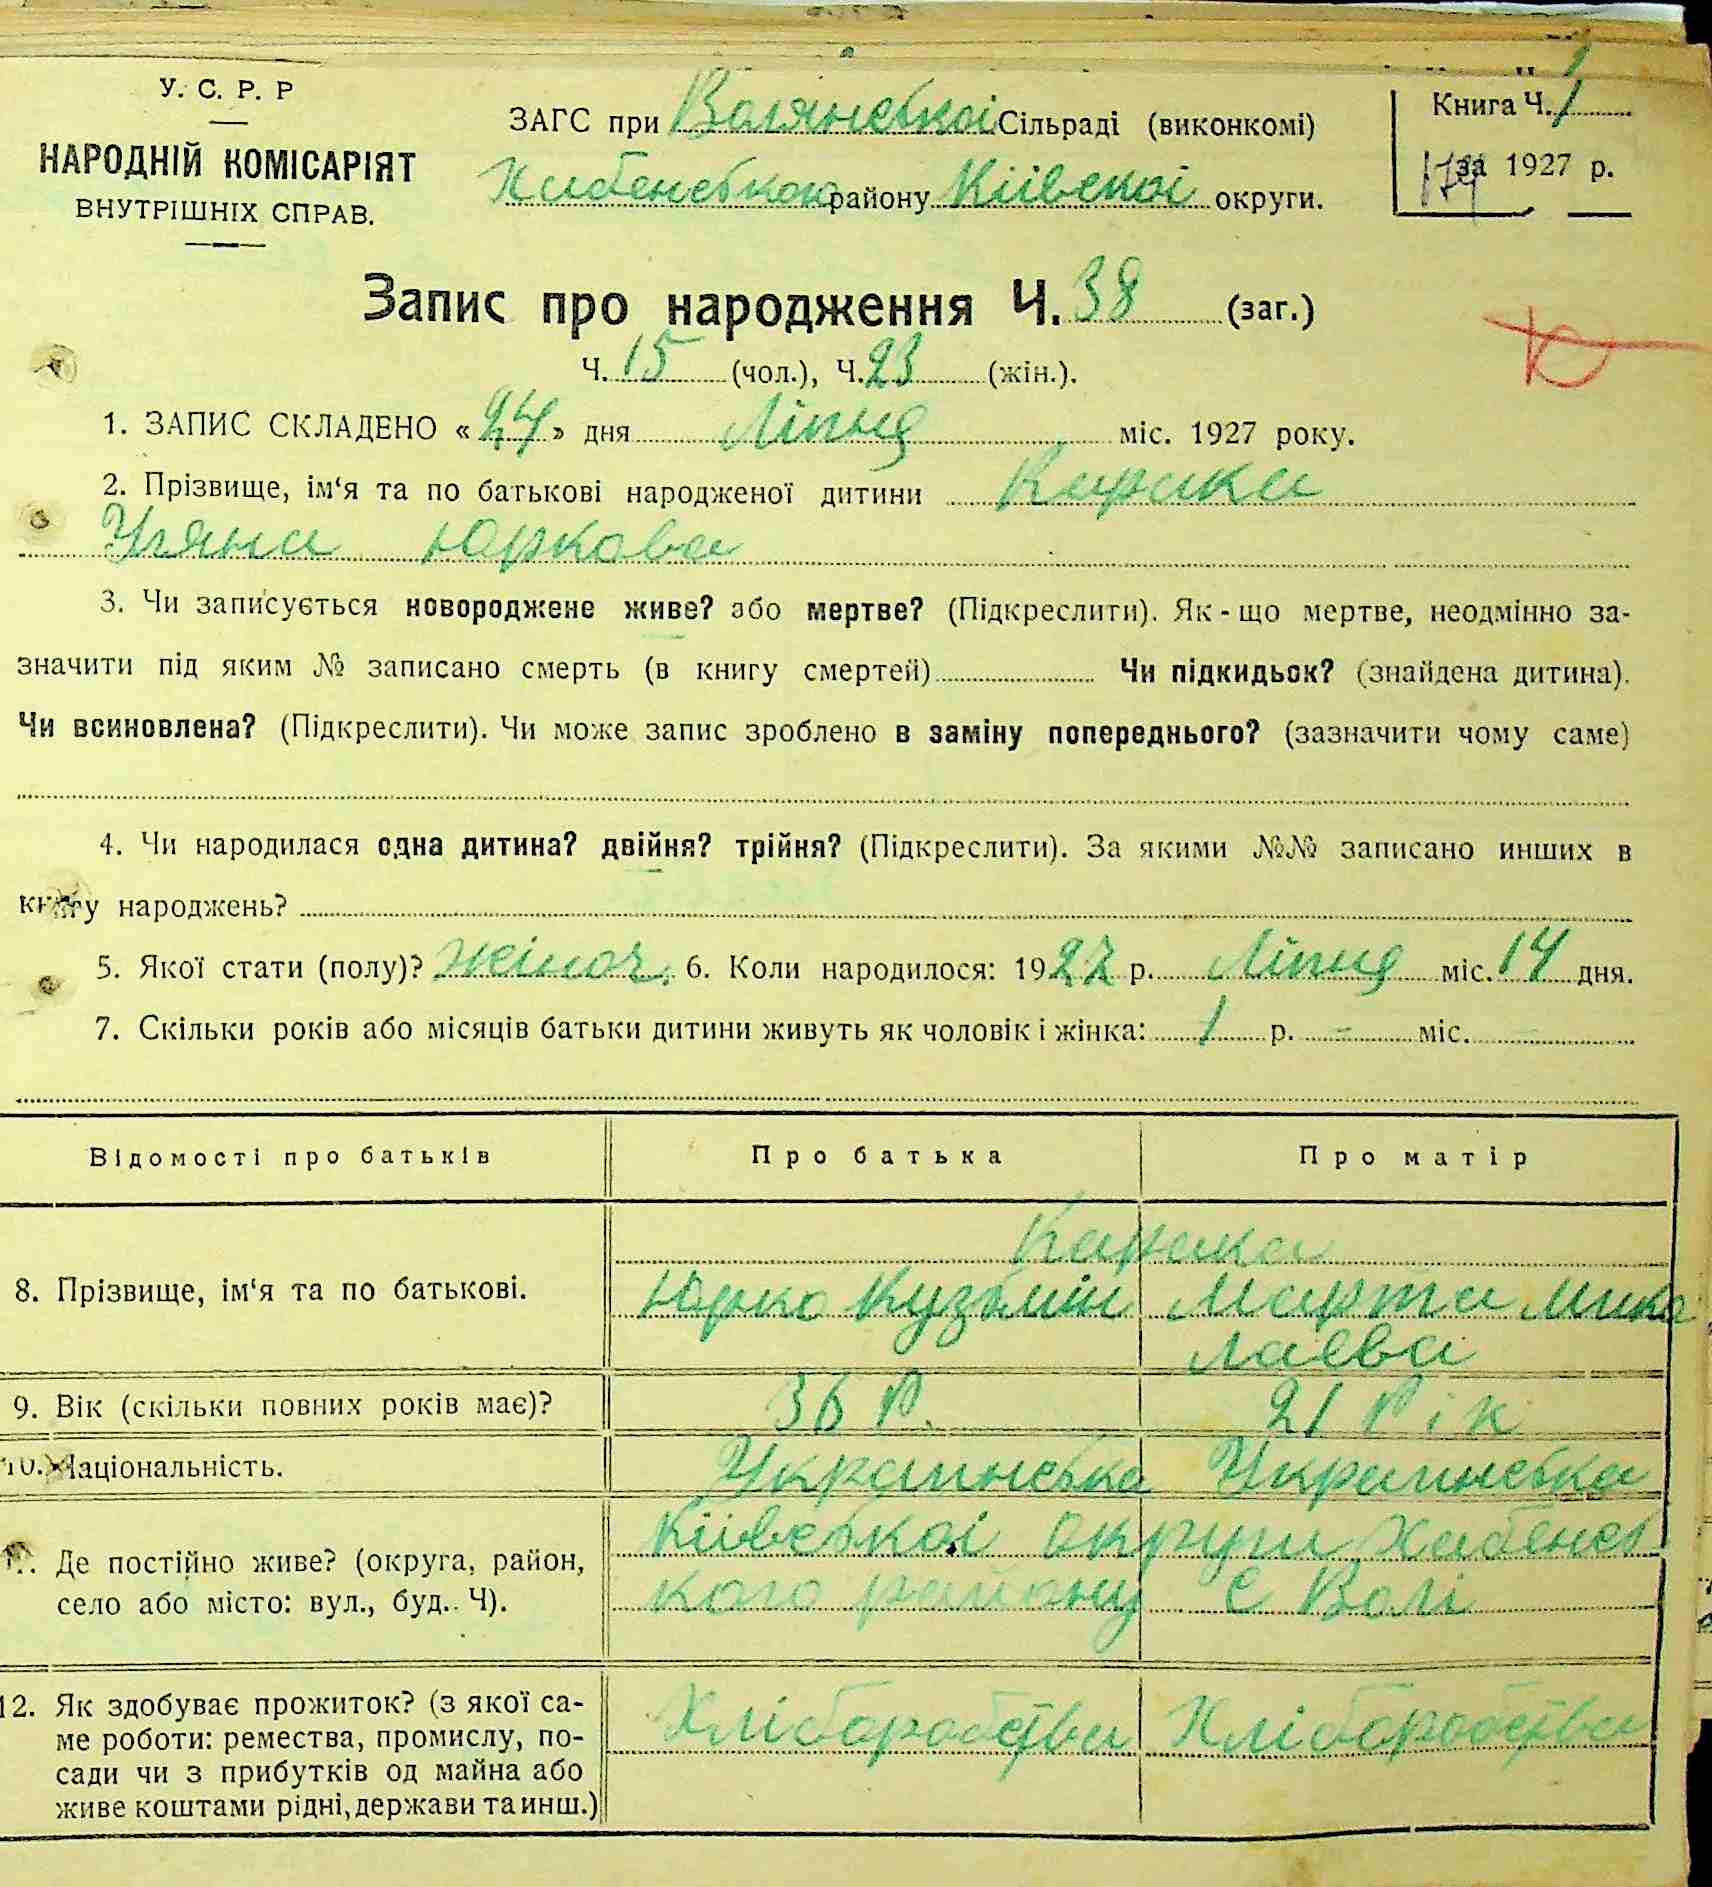 У. С. Р. Р
НАРОДНІЙ КОМІСАРІЯТ
ВНУТРІШНІХ СПРАВ.
ЗАГС при Волянської Сільраді (виконкомі)
Хабенського району Київскоі округи.
Книга Ч. 1
за 1927 р.
174
Запис про народження Ч. 38 (заг.)
Ч. 15 (чол.), Ч. 23 (жін.).
1. ЗАПИС СКЛАДЕНО «24» дня Ліпця міс. 1927 року.
2. Прізвище, ім‘я та по батькові народженої дитини Карака
Уляна Юркова
3. Чи записується новороджене живе? або мертве? (Підкреслити). Як-що мертве, неодмінно за-
значити під яким № записано смерть (в книгу смертей) Чи підкидьок? (знайдена дитина).
Чи всиновлена? (Підкреслити). Чи може запис зроблено в заміну попереднього? (зазначити чому саме)
4. Чи народилася одна дитина? двійня? трійня? (Підкреслити). За якими №№ записано инших в
книгу народжень?
5. Якої стати (полу)? жіноч. 6. Коли народилося: 1927 р. Ліпця міс. 14 дня.
7. Скільки років або місяців батьки дитини живуть як чоловік і жінка: 1 р. - міс.
Відомості про батьків Про батька Про матір
Карака
8. Прізвище, ім‘я та по батькові. Юрко Кузьмін Марта Мико
лаєва
9. Вік (скільки повних років має)? 36 р. 21 рік
10. Національність. Украинська Украинська
11. Де постійно живе? (округа, район,
село або місто: вул., буд. Ч).
Київськоі округи Хабенсь
кого району с Волі
12. Як здобуває прожиток? (з якої са-
ме роботи: ремества, промислу, по-
сади чи з прибутків од майна або
живе коштами рідні, держави та инш.)
Хліборобства Хліборобства